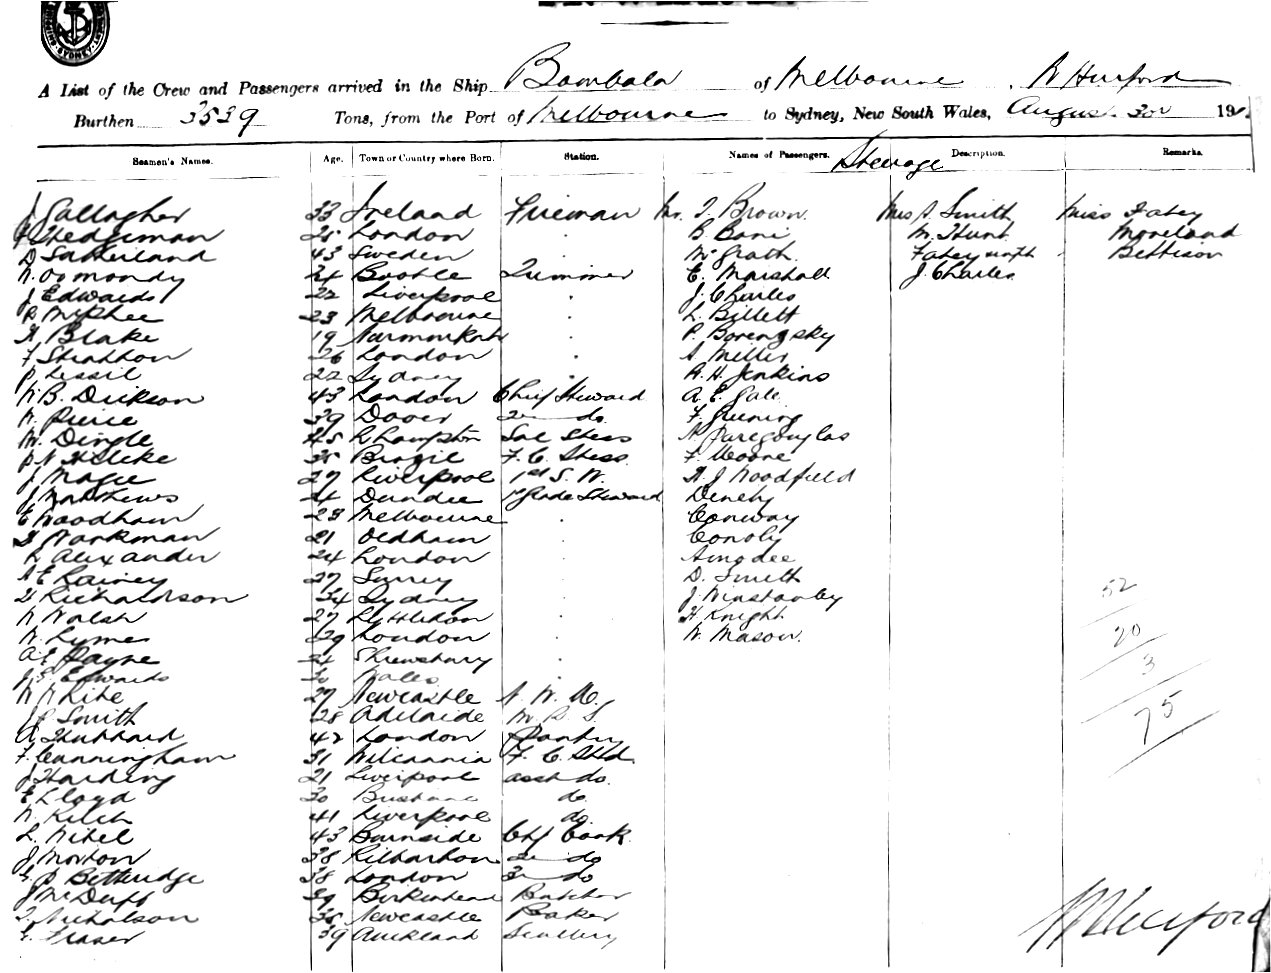 A List of the Crew and Passengers arrived in the Ship Bombala of Melbourne, Hurford
Burthen 3539 Tons, from the Port of Melbourne to Sydney, New South Wales, August 3rd 19
Seamen's Names. Age. Town or Country where Born. Station. Names of Passengers. Description. Remarks.
Steerage
J Gallagher 33 Ireland Fireman Mr. Brown. Smith Miss Fahey
Hedgeman London B. Bani M. Hunt Moreland
D Sutherland 43 Sweden McGrath Fahey Bettison
W. Ormondy 24 Bootle Trimmer E. Marshall J. Charles
J Edwards 22 Liverpool J. Charles
McPhee 23 Melbourne L. Billett
H Blake 19 P.
F Stratton 26 London A. Miller
P 22 Sydney A. H. Jenkins
W. B. Dickson 43 London Chief Steward A. E. Gale
W. Pierce 39 Dover 2nd do F.
M. Dingle 45 Sal Stess N.
Brazil F. C. Stess F. Moore
J Magee 27 Liverpool 1st S. W. H. J Woodfield
J Matthews 24 Dundee 1st Grade Steward Denehy
E Woodham 23 Melbourne Conway
Workman 21 Oldham Conoly
R Alexander 24 London Amodee
A E Rainey 27 Surrey D. Smith
H Richardson 34 Sydney J. Winstanley
W Walsh 27 Lyttleton H Knight
W. Lymes 39 London W. Mason.
A. E. Payne 24 Shrewsbury
J. S. Edwards 30 Wales
W White 27 Newcastle
J. P. Smith 28 Adelaide
A Hubbard 42 London Pantry
F. Cunningham 31 Wilcannia F. C. Sttd.
J Harding 21 Liverpool asst do.
E Lloyd 30 Brisbane do.
W. Kelch 41 Liverpool do.
L. Nitel 43 Burnside Chf Cook
J Morton 38 Kilbarchan 2nd do
G. P Betteridge 38 London 3rd do
J McDuff 39 Birkenhead Butcher
Nicholson Newcastle Baker
G. Fraser 39 Auckland Scullery
52
20
3
75
Hurford